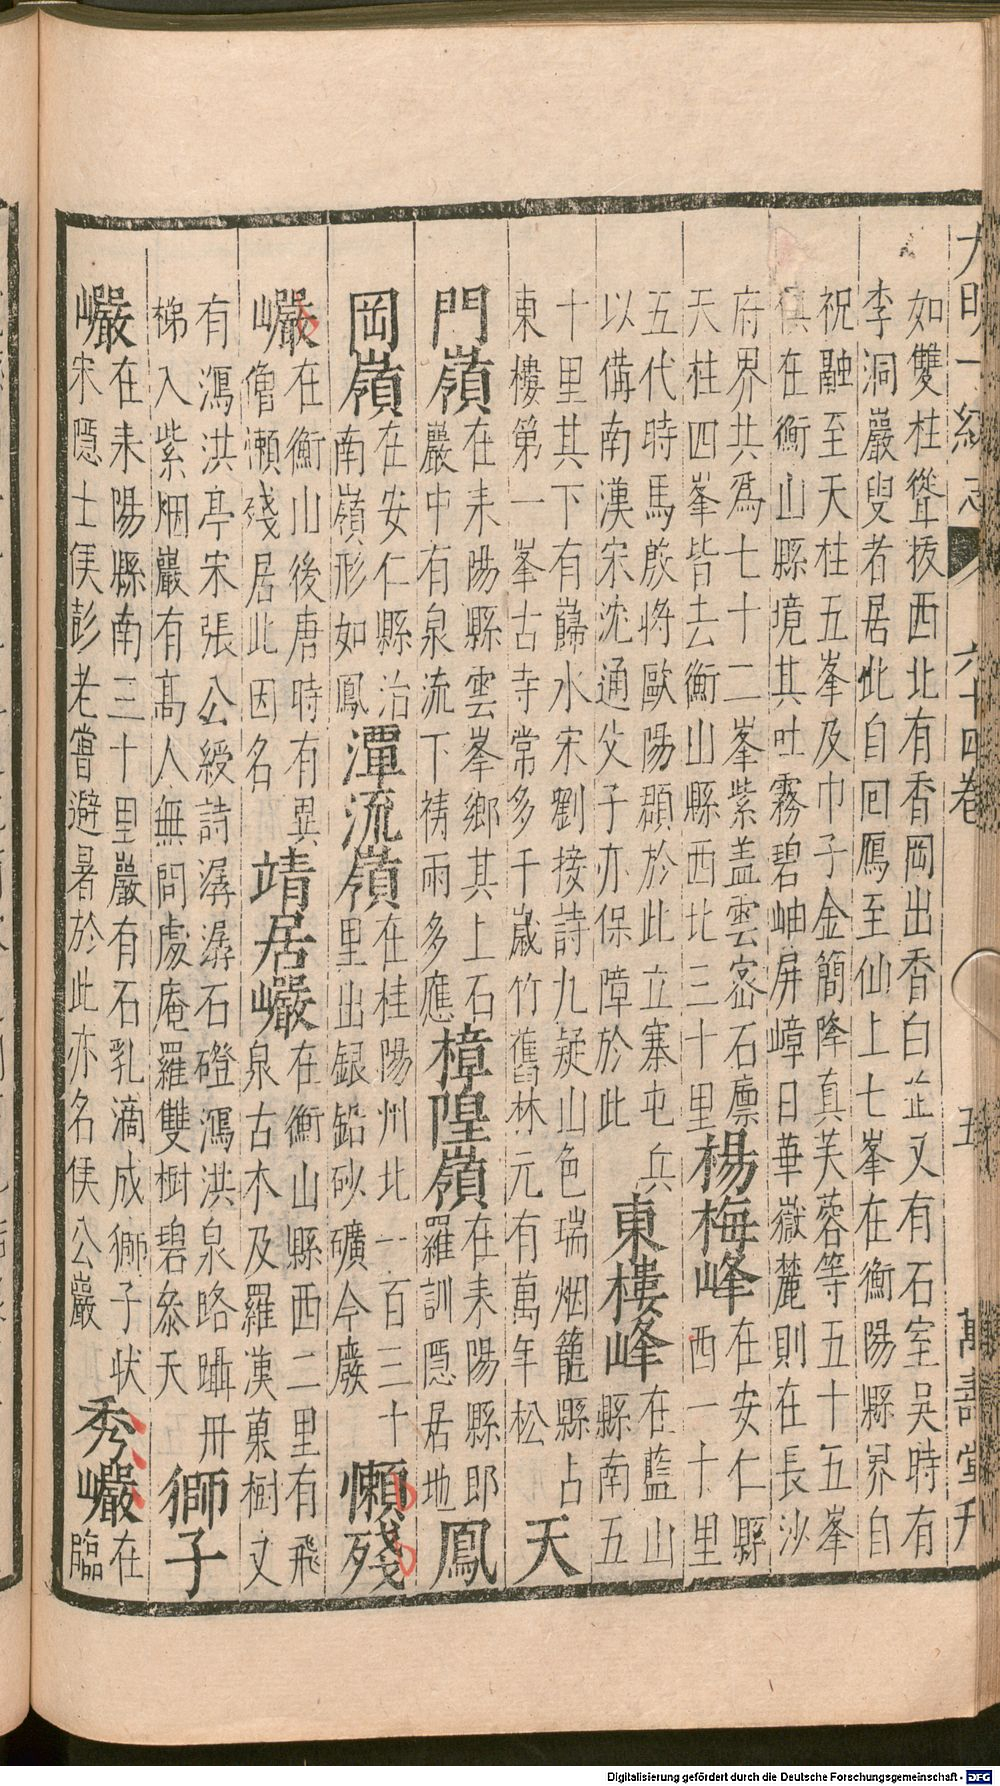 大明一統志 六十四卷 五 萬壽堂刊
如雙桂聳拔西北有香岡出香白芷又有石室吳時有
李洞嚴叟者居此自回鴈至仙上七峯在衡陽縣界自
祝融至天柱五峯及巾子金簡降真芙蓉等五十五峯
俱在衡山縣境其吐霧碧岫屏嶂日華嶽麓則在長沙
府界共爲七十二峯紫盖雲宻石廪
天柱四峯皆去衡山縣西北三十里
楊梅峰
在安仁縣
西一十里
五代時馬殷將歐陽頵於此立寨屯兵
以備南漢宋沈通父子亦保障於此
東樓峰
在藍山
縣南五
十里其下有歸水宋劉接詩九疑山色瑞烟籠縣占
東樓第一峯古寺常多千嵗竹舊林元有萬年松
天
門嶺
在耒陽縣雲峯鄉其上石
嚴中有泉流下祷雨多應
樟隍嶺
在耒陽縣郎
羅訓隱居地
鳳
岡嶺
在安仁縣治
南嶺形如鳳
潭流嶺
在桂陽州北一百三十
里出銀鉛砂礦今廢
懶殘
巗
在衡山後唐時有異
僧瀨殘居此因名
靖居巗
在衡山縣西二里有飛
泉古木及羅漢菓樹又
有㵎洪亭宋張公綬詩潺潺石磴㵎洪泉路躡丹
梯入紫烟嚴有髙人無問處庵羅雙樹碧叅天
獅子
巗
在耒陽縣南三十里嚴有石乳滴成獅子状
宋隱士侯彭老嘗避暑於此亦名侯公嚴
秀巗
在
臨
Digitalisierung gefördert durch die Deutsche Forschungsgemeinschaft - DFG